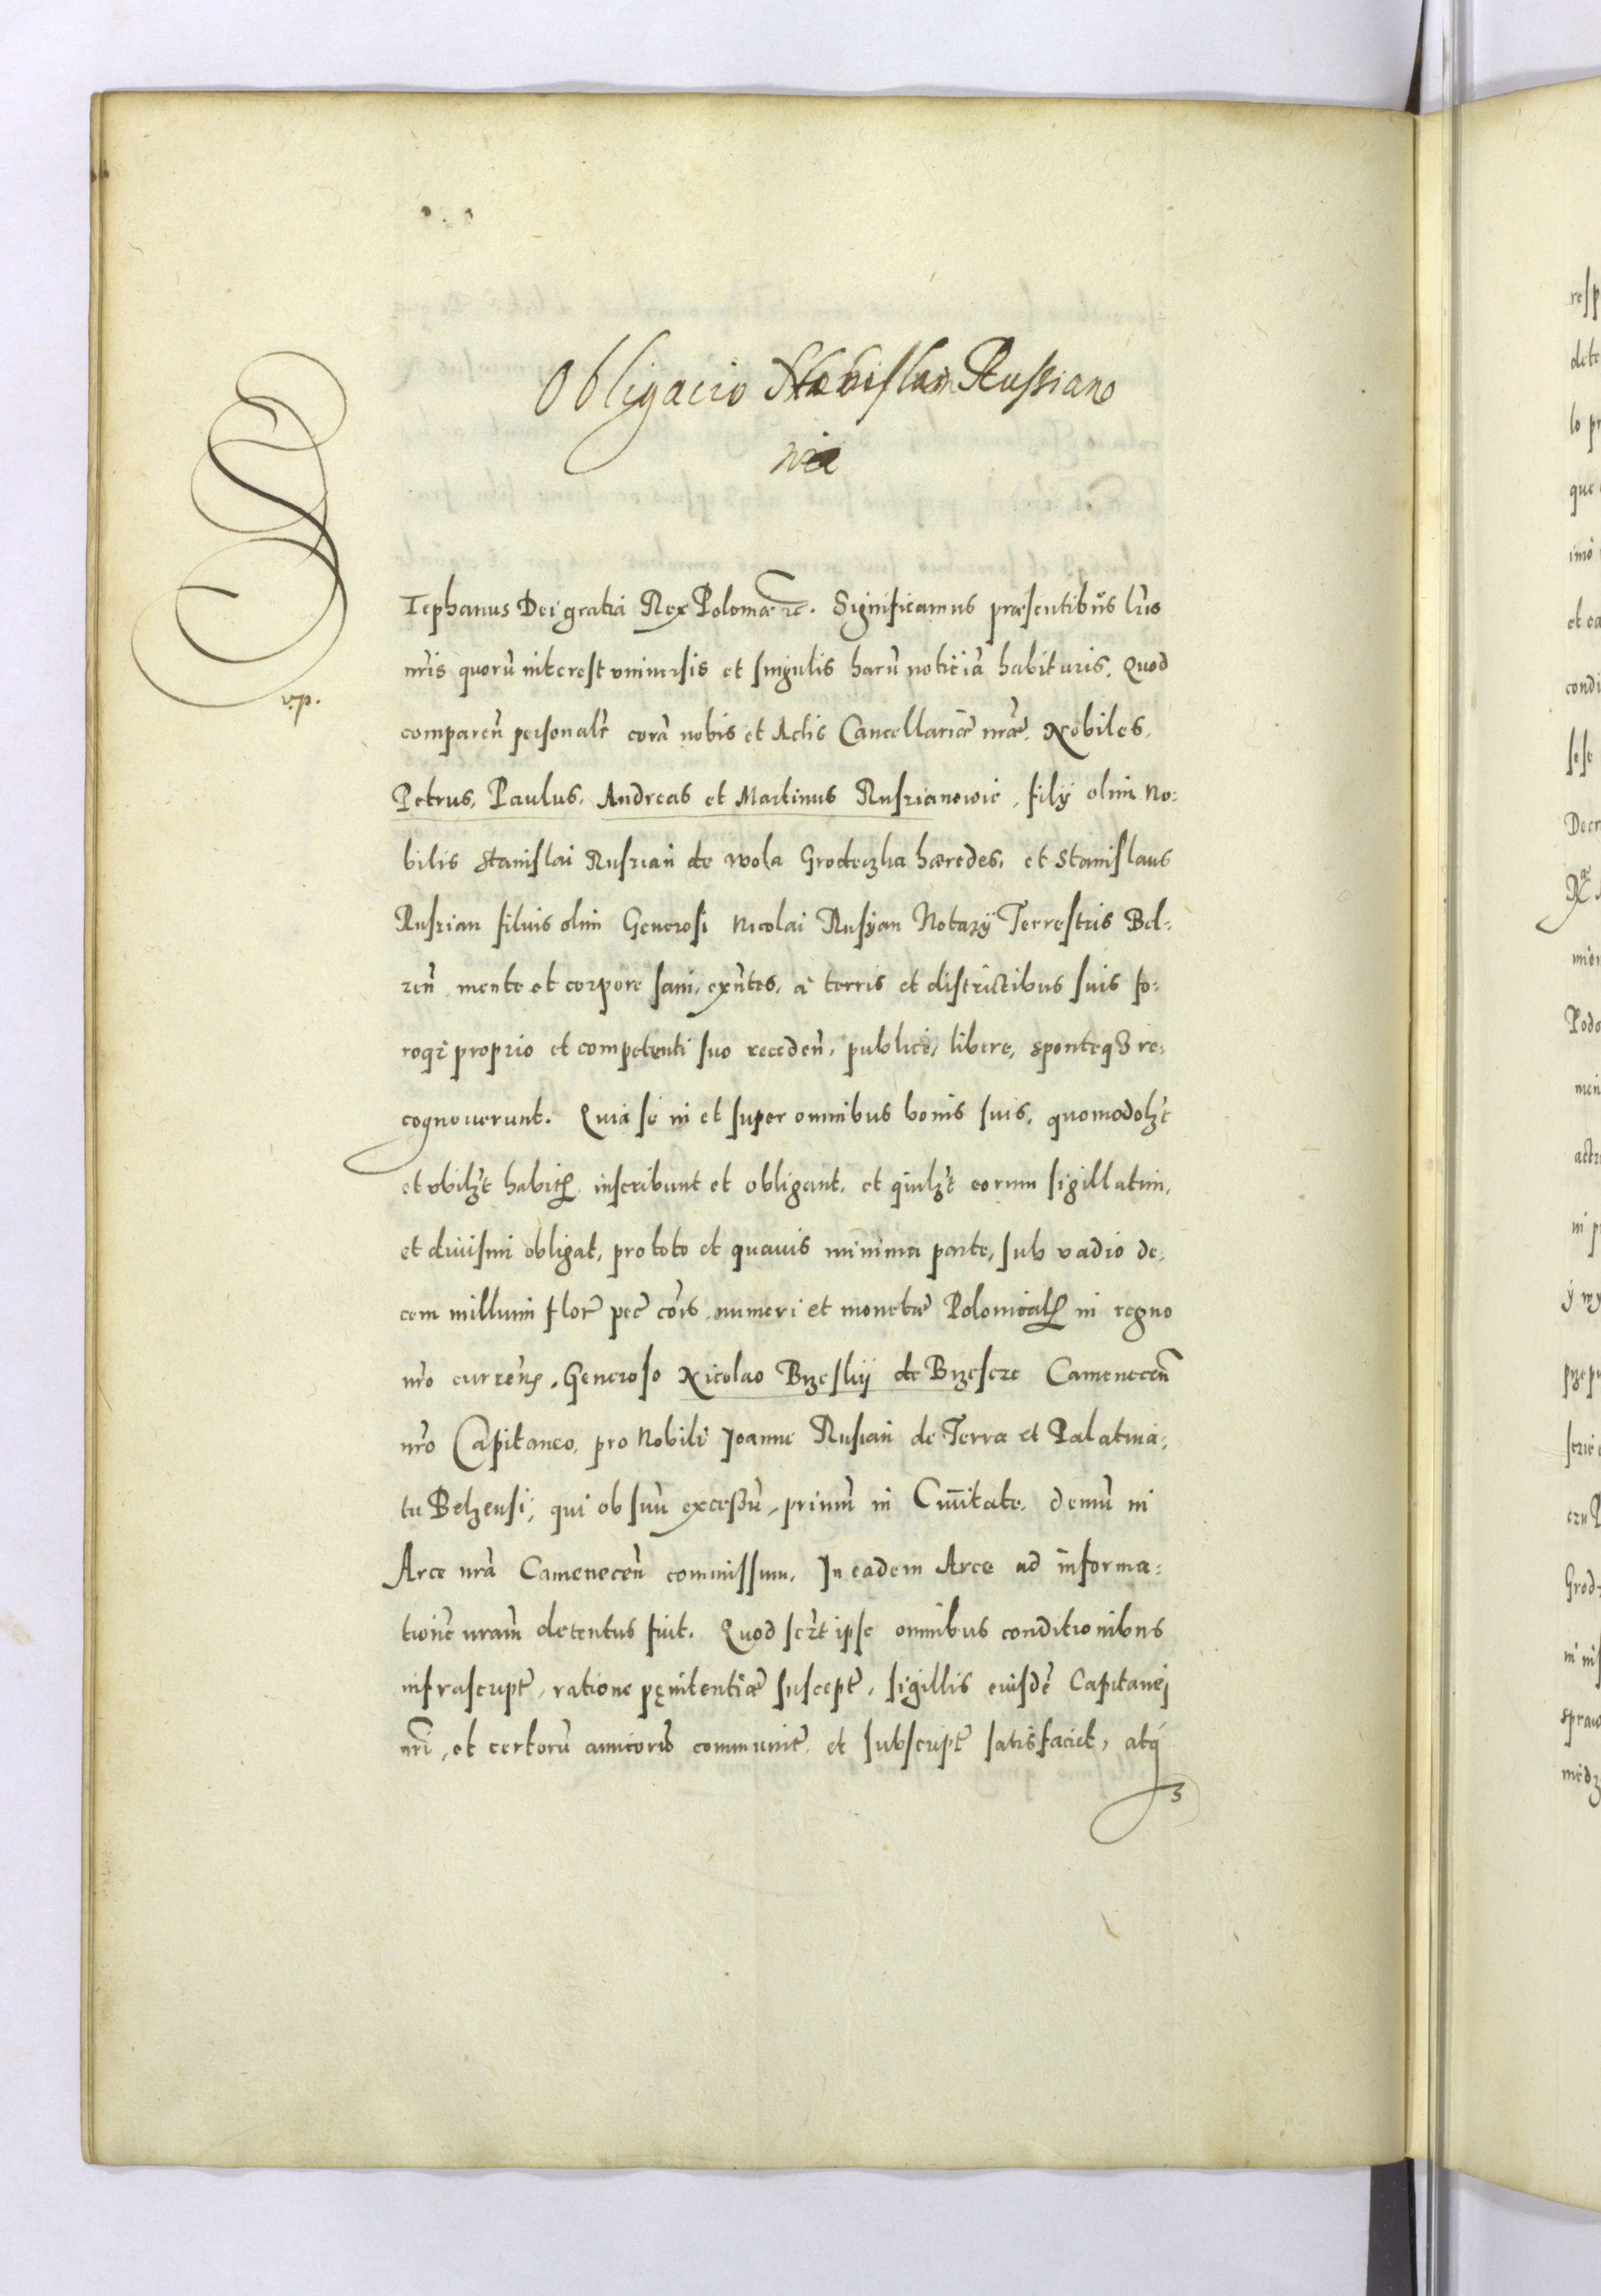 Obligacio Stanislai Russiano
wic
STephanus Dei gratia Rex Poloniæ ꝛc. Significamus præsentibus lr̃is
nr̃is quorũ interest vniuersis et singulis harũ noticiã habituris. Quod
comparen̄ personalr̃ corã nobis et Actis Cancellariæ nr̃æ. Nobiles.
v.p.
Petrus, Paulus, Andreas et Martinus Ruszianowie, filÿ olim No:
bilis Stanislai Ruszian de Wola Grodeczka hæredes, et Stanislaus
Ruszian filius olim Generosi Nicolai Rusÿan Notarÿ Terrestris Bel:
zen̄, mente et corpore sani, exn̄tes, à terris et districtibus suis fo:
roq̃ proprio et competenti suo receden̄, publicè, libere, sponteqꝫ re:
cognouerunt. Quia se in et super omnibus bonis suis, quomodolꝫt
et vbilꝫt habit̃, inscribunt et obligant, et quilꝫt eorum sigillatim,
et diuisim obligat, pro toto et quauis minima parte, sub vadio de:
cem millium flor̃ pec̃ cõis, numeri et monetæ Polonical̃ in regno
nr̃o curren̄, Generoso Nicolao Brzeskÿ de Brzescze Camenecen̄
nr̃o Capitaneo, pro Nobili Joanne Rusian de Terra et Palatina:
tu Belzensi, qui ob suũ excessũ, primũ in Ciuitate, demũ in
Arce nr̃a Camenecen̄ commissum, In eadem Arce ad informa:
tionẽ nr̃am detentus fuit. Quod scꝫt ipse omnibus conditionibus
infrascript̃, ratione pęnitentiæ suscept̃, sigillis eiusdẽ Capitanei
nr̃i, et certorũ amicorũ communit̃, et subscript̃ satisfaciet, atq́
ꝫ